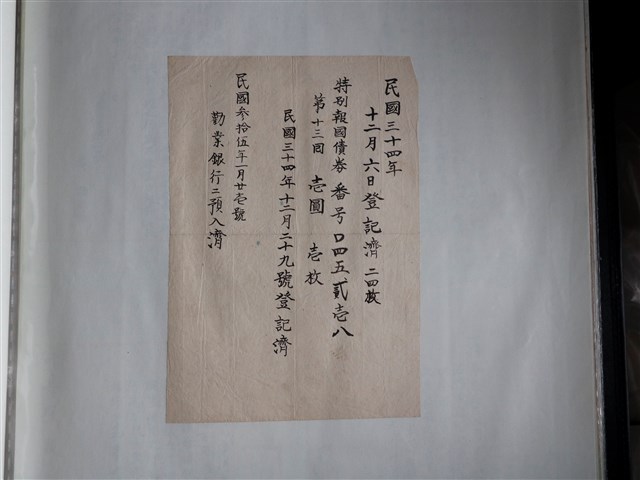 民國三十四年
十二月六日登記濟二四枚
特別報國債券番号口四五貳壱八
第十三回 壱圓 壱枚
民國三十四年十二月二十九號登記濟
民國参拾伍年一月廿壱號
勧業銀行ニ預入濟